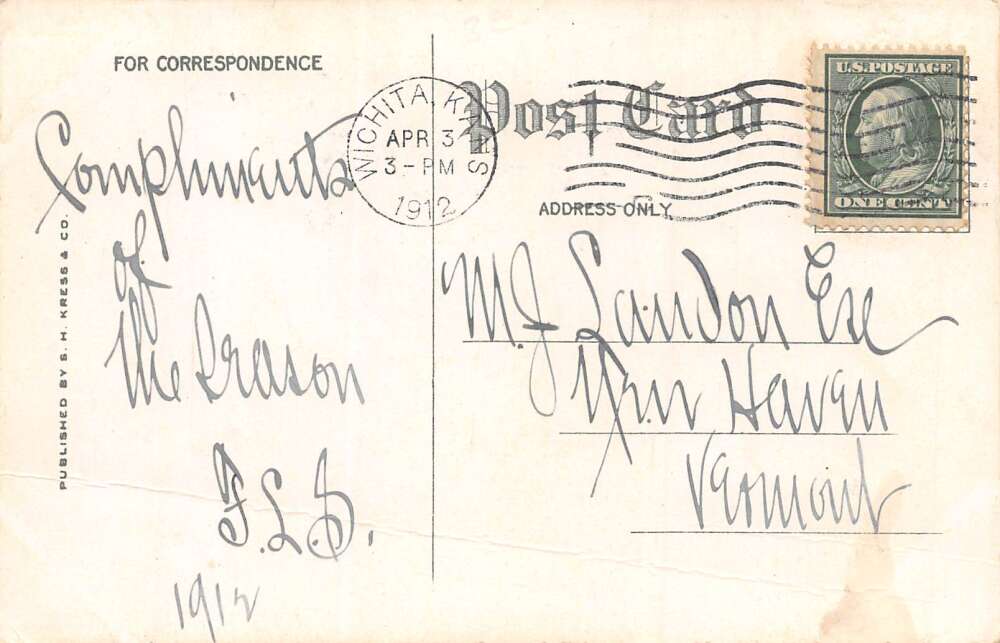 FOR CORRESPONDENCE
Compliments
of
the Season
F.L.S.
1912
PUBLISHED BY S. H. KRESS & CO.
Post Card
WICHITA, KANS
APR 3
3-PM
1912
U.S. POSTAGE
ONE CENT
ADDRESS ONLY
M. J. Landon Esq
New Haven
Vermont